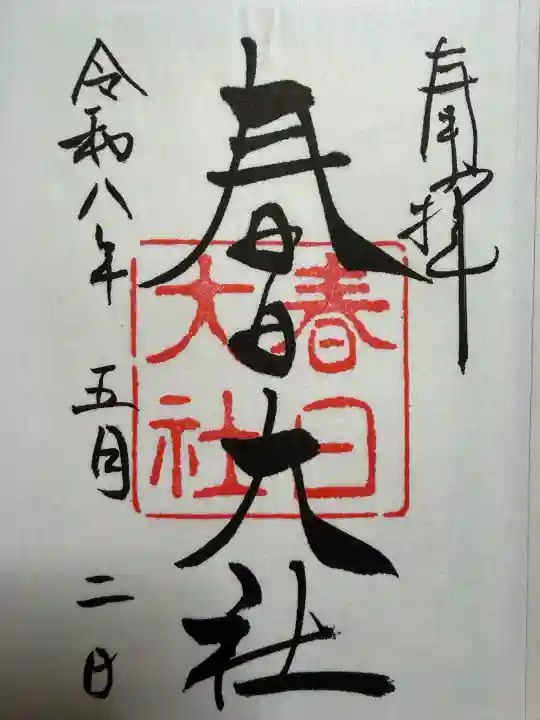 奉拝
春日大社
春日
大社
令和八年 五月 二日